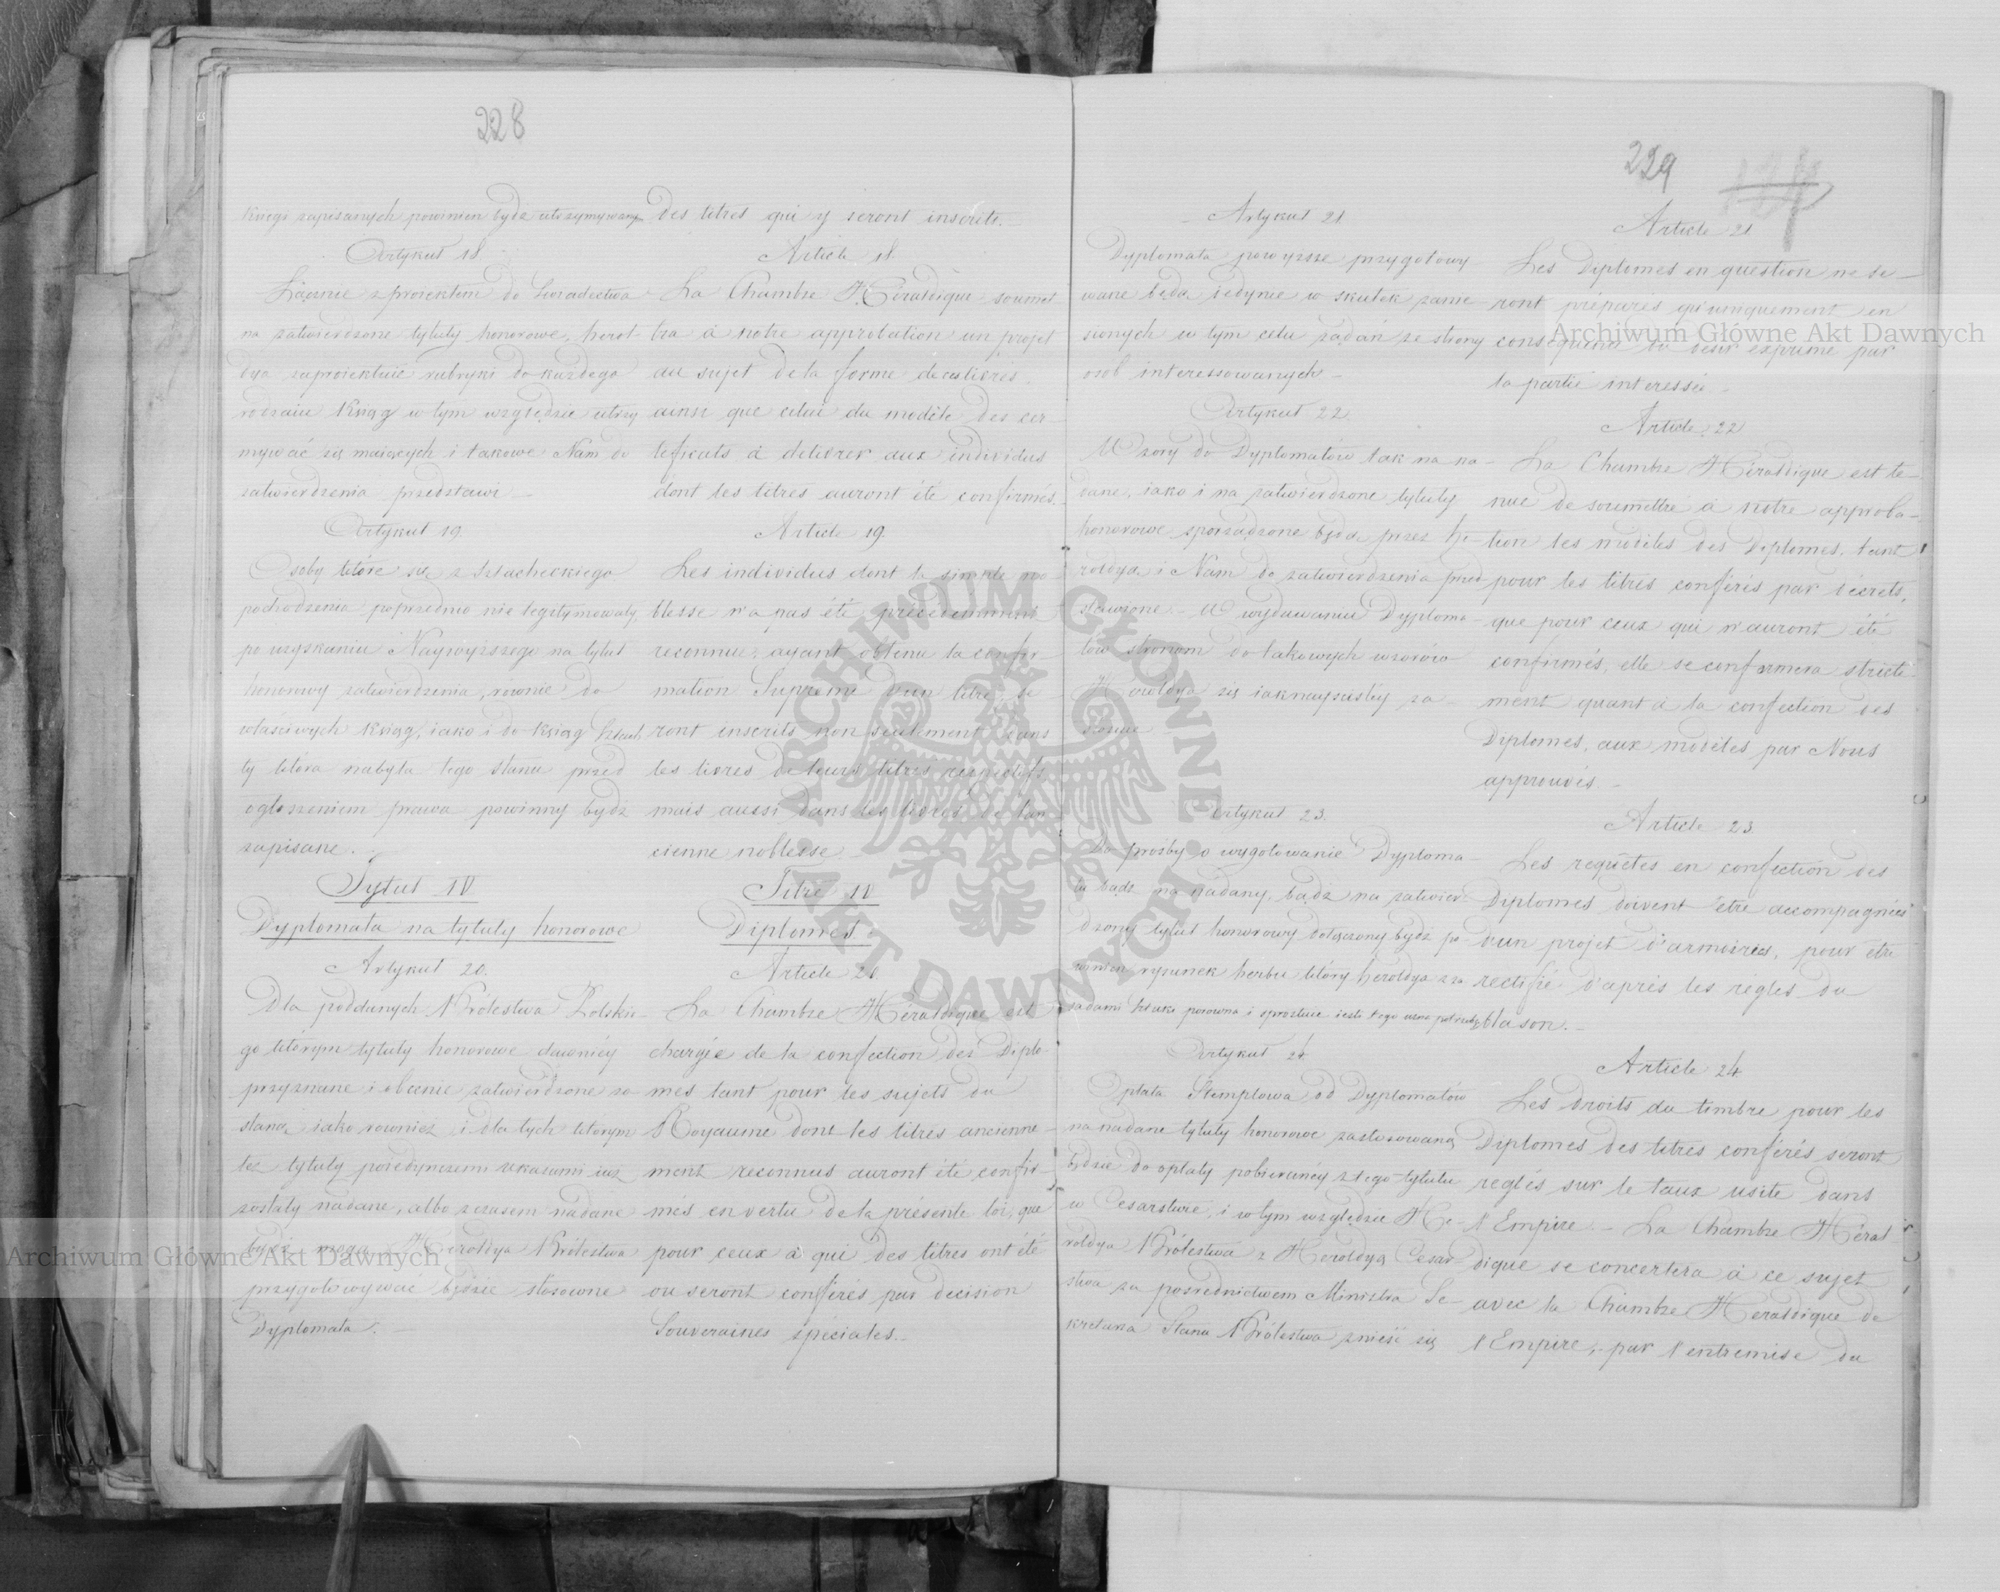 228
księgi zapisanych powinien będzie utrzymywany
Artykuł 18.
Łącznie z projektem do Świadectwa
na zatwierdzone tytuły honorowe, herol-
dya zaprojektuie rubryki do każdego
rodzaiu Ksiąg w tym względzie utrzy
mywać się maiących i takowe Nam do
zatwierdzenia przedstawi —
Artykuł 19.
Osoby które się z Szlacheckiego
pochodzenia poprzednio nie legitymowały,
po uzyskaniu Naywyższego na tytuł
honorowy zatwierdzenia, równie do
właściwych Ksiąg, iako i do Ksiąg Szlach
ty która nabyła tego stanu przed
ogłoszeniem prawa powinny bydź
zapisane.
Tytuł IV
Dyplomata na tytuły honorowe
Artykuł 20.
Dla poddanych Królestwa Polskie-
go którym tytuły honorowe dawniéy
przyznane i obecnie zatwierdzone zo
staną, iako rownież i dla tych którym
też tytuły poiedynczemi ukazami iuż
zostały nadane, albo z czasem nadane
bydź mogą, Heroldya Królestwa
przygotowywać będzie stosowne
Dyplomata. —
des titres qui y seront inscrits. —
Article 18.
La Chambre Héraldique soumet
tra à notre approbation un projet
au sujet de la forme de ces livres,
ainsi que celui du modèle des cer-
tificats à délivrer aux individus
dont les titres auront été confirmés.
Article 19.
Les individus dont la simple no
blesse n'a pas été précédemment
reconnue, ayant obtenu la confir
mation Suprême d'un titre, se
ront inscrits non seulement dans
les livres de leurs titres respectifs
mais aussi dans les livres de l'an
cienne noblesse —
Titre IV
Diplomes.
Article 20.
La Chambre Héraldique est
chargée de la confection des Diplo-
mes tant pour les sujets du
Royaume dont les titres ancienne-
ment reconnus auront été confir-
més en vertu de la présente loi, que
pour ceux à qui des titres ont été
ou seront conférés par decision
Souveraines spéciales. —
229
124
Artykuł 21
Dyplomata powyższe przygotowy
wane będą iedynie w skutek zanie
sionych w tym celu żądań ze strony
osób interessowanych —
Artykuł 22.
Wzory do Dyplomatów tak na na-
dane, iako i na zatwierdzone tytuły
honorowe sporządzone będą przez He-
roldyą i Nam do zatwierdzenia przed
stawione. — W wydawaniu Dyploma-
tów stronom do takowych wzorów
Heroldya się iaknayściśléy za-
stosuie
Artykuł 23.
Do prośby o wygotowanie Dyploma-
tu bądź na nadany, bądź na zatwier-
dzony tytuł honorowy dołączony bydź po-
winien rysunek herbu który heroldya z za
sadami Sztuki porówna i sprostuie ieśli tego uzna potrzebę
Artykuł 24.
Opłata Stemplowa od Dyplomatów
na nadane tytuły honorowe zastosowaną
będzie do opłaty pobieranéy z tego tytułu
w Cesarstwie, i w tym względzie He-
roldya Królestwa z Heroldyą Cesar
stwa za pośrednictwem Ministra Se-
kretarza Stanu Królestwa znieść się
Article 21
Les Diplomes en question ne se-
ront préparés qu'uniquement en
conséquence du désir exprimé par
la partie interessée —
Article 22
La Chambre Héraldique est te-
nue de soumettre à notre approba-
tion les modèles des Diplomes, tant
pour les titres conférés par décrets,
que pour ceux qui n'auront été
confirmés, elle se conformera stricte-
ment quant à la confection des
Diplomes, aux modèles par Nous
approuvés —
Article 23.
Les requêtes en confection des
Diplomes doivent être accompagnées
d'un projet d'armoiries, pour être
rectifié d'après les regles du
blason. —
Article 24
Les droits du timbre pour les
Diplomes des titres conférés seront
reglés sur le taux usité dans
l'Empire. — La Chambre Héral
dique se concertera à ce sujet
avec la Chambre Heraldique de
l'Empire, par l'entremise du
Archiwum Główne Akt Dawnych
Archiwum Główne Akt Dawnych
ARCHIWUM GŁÓWNE
AKT DAWNYCH